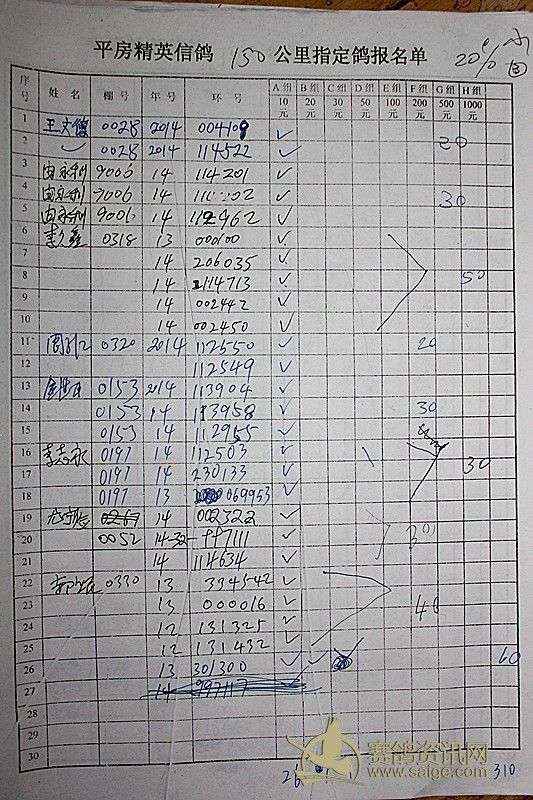 平房精英信鸽 150 公里指定鸽报名单 20%
序号 姓名 棚号 年号 环号 A组10元 B组20元 C组30元 D组50元 E组100元 F组200元 G组500元 H组1000元
1 王文德 0028 2014 004109 ✓
2 0028 2014 114522 ✓ 20
3 由永利 9006 14 114201 ✓
4 由永利 9006 14 ✓ 30
5 由永利 9006 14 112962 ✓
6 0318 13 000100 ✓
7 14 206035 ✓
8 14 2114713 ✓ 50
9 14 002442 ✓
10 14 002450 ✓
11 0320 2014 112550 ✓ 20
12 112549 ✓
13 0153 2014 113904 ✓
14 0153 14 113958 ✓ 30
15 0153 14 112955 ✓
16 李志永 0197 14 112503 ✓
17 0197 14 230133 ✓ 30
18 0197 13 069953 ✓
19 14 002322 ✓
20 0052 14-32- ✓ 30
21 14 114634 ✓
22 0330 13 334542 ✓
23 13 000016 ✓ 40
24 12 131325 ✓
25 12 131432 ✓
26 13 301300 ✓ ✓ 60
27 14 997117
28
29
30
26 310
赛鸽资讯网
www.saige.com